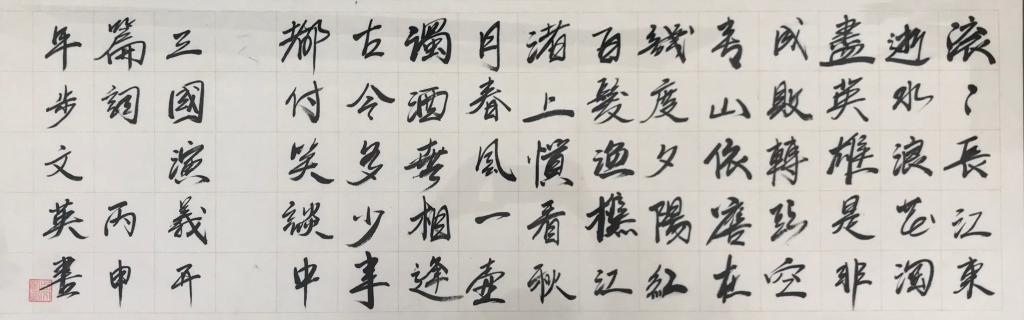 滚〻長江東
逝水浪花淘
盡英雄是非
成敗轉頭空
青山依舊在
幾度夕陽紅
百髮漁樵江
渚上慣看秋
月春風一壺
濁酒喜相逢
古今多少事
都付笑談中
三國演義开
篇詞 丙申
年步文英書